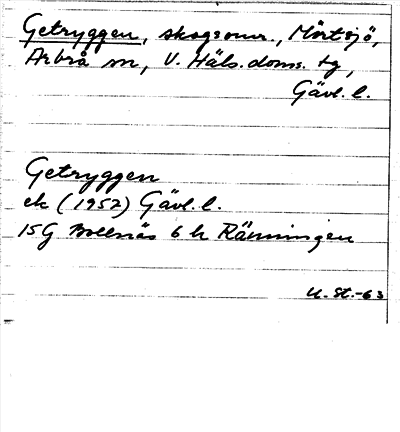 Getryggen, skogsomr., Mörtsjö,
Arbrå sn, V. Häls. doms. tg,
Gävl. l.
Getryggen
ek (1952) Gävl. l.
15G Bollnäs 6 h Ränningen
U. St.-63